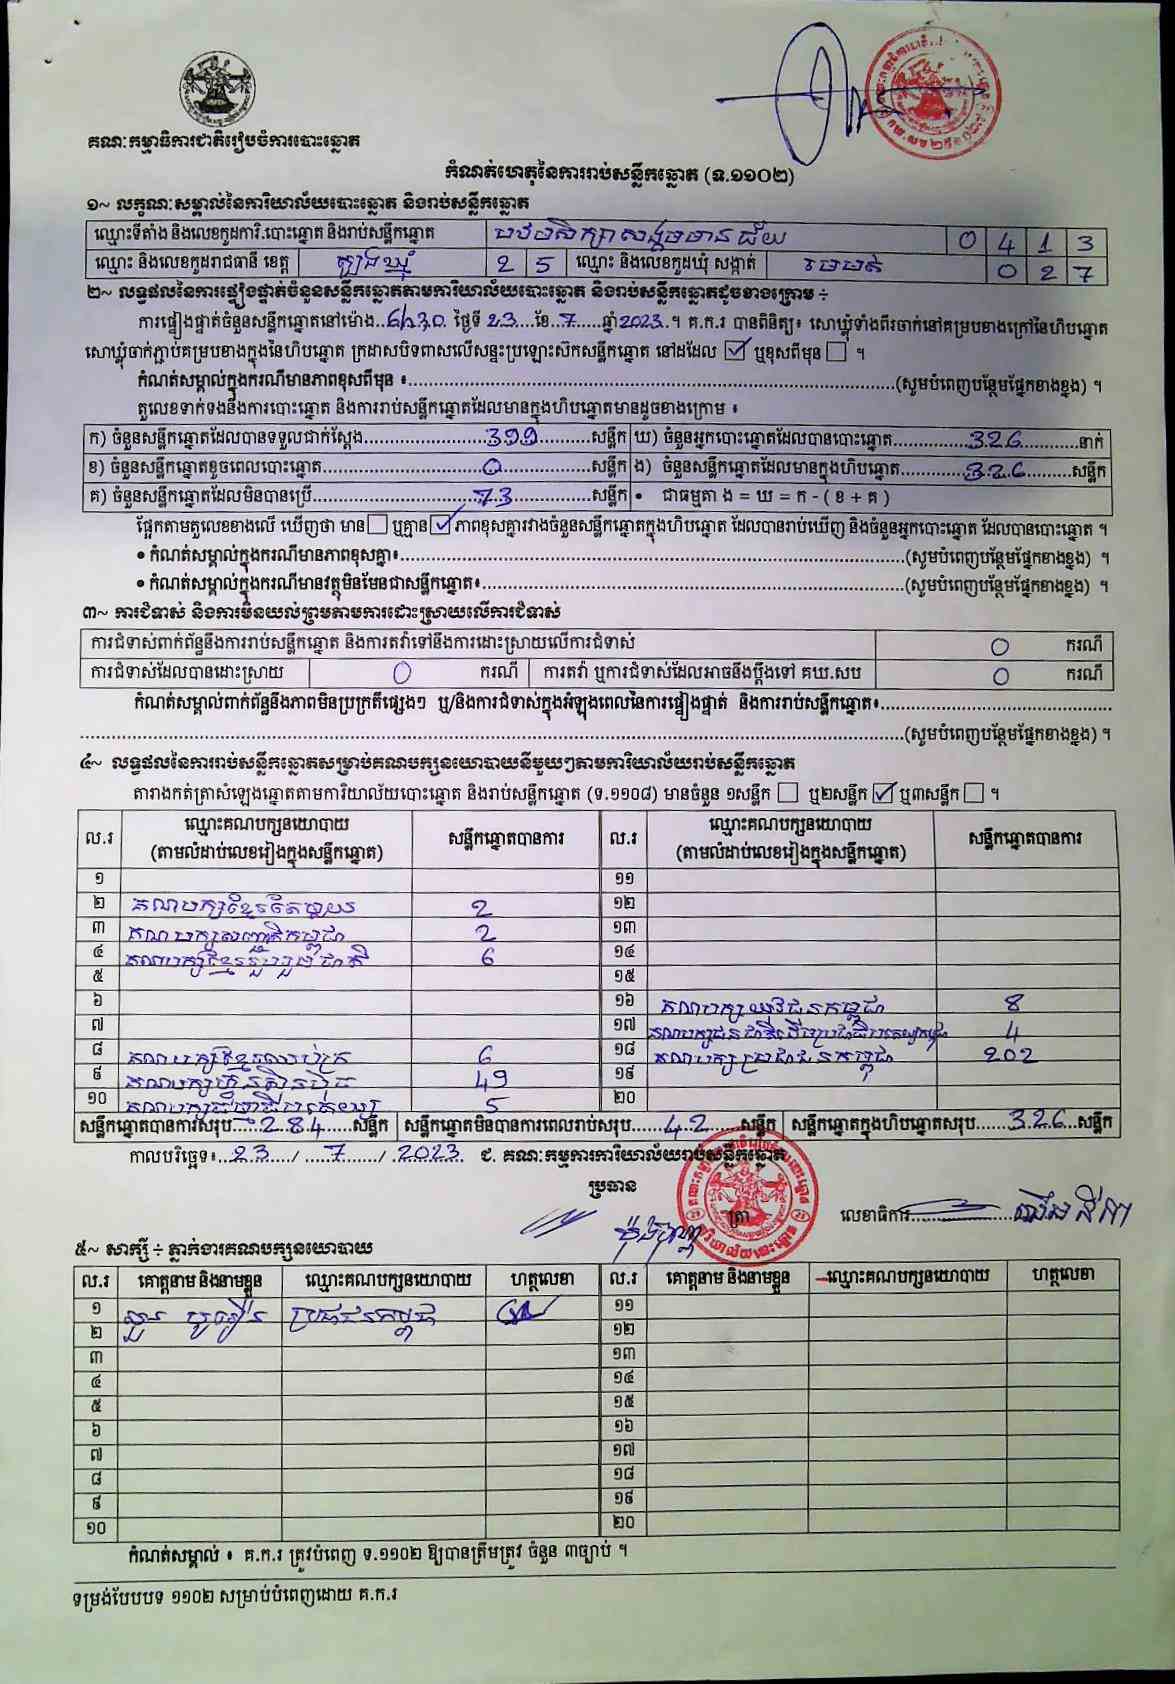 គណៈកម្មាធិការជាតិរៀបចំការបោះឆ្នោត
កំណត់ហេតុនៃការរាប់សន្លឹកឆ្នោត (ទ.១១០២)
១~ លក្ខណៈសម្គាល់នៃការិយាល័យបោះឆ្នោត និងរាប់សន្លឹកឆ្នោត
ឈ្មោះទីតាំង និងលេខកូដការិ.បោះឆ្នោត និងរាប់សន្លឹកឆ្នោត បឋមសិក្សាសង្គមមានជ័យ 0 4 1 3
ឈ្មោះ និងលេខកូដរាជធានី ខេត្ត ត្បូងឃ្មុំ 2 5 ឈ្មោះ និងលេខកូដឃុំ សង្កាត់ 0 2 7
២~ លទ្ធផលនៃការផ្ទៀងផ្ទាត់ចំនួនសន្លឹកឆ្នោតតាមការិយាល័យបោះឆ្នោត និងរាប់សន្លឹកឆ្នោតដូចខាងក្រោម ÷
ការផ្ទៀងផ្ទាត់ចំនួនសន្លឹកឆ្នោតនៅម៉ោង..6h30 ថ្ងៃទី 23 ខែ 7 ឆ្នាំ 2023 ។ គ.ក.រ បានពិនិត្យ៖ សោឃ្លុំទាំងពីរចាក់នៅគម្របខាងក្រៅនៃហិបឆ្នោត
សោឃ្លុំចាក់ភ្ជាប់គម្របខាងក្នុងនៃហិបឆ្នោត ក្រដាសបិទពាសលើសន្ទះប្រឡោះស៊កសន្លឹកឆ្នោត នៅដដែល ☑ ឬខុសពីមុន ☐ ។
កំណត់សម្គាល់ក្នុងករណីមានភាពខុសពីមុន ៖.....(សូមបំពេញបន្ថែមផ្នែកខាងខ្នង) ។
តួលេខទាក់ទងនឹងការបោះឆ្នោត និងការរាប់សន្លឹកឆ្នោតដែលមានក្នុងហិបឆ្នោតមានដូចខាងក្រោម ៖
ក) ចំនួនសន្លឹកឆ្នោតដែលបានទទួលជាក់ស្តែង.....399.....សន្លឹក ឃ) ចំនួនអ្នកបោះឆ្នោតដែលបានបោះឆ្នោត.....326.....នាក់
ខ) ចំនួនសន្លឹកឆ្នោតខូចពេលបោះឆ្នោត.....0.....សន្លឹក ង) ចំនួនសន្លឹកឆ្នោតដែលមានក្នុងហិបឆ្នោត.....326.....សន្លឹក
គ) ចំនួនសន្លឹកឆ្នោតដែលមិនបានប្រើ.....73.....សន្លឹក • ជាធម្មតា ង = ឃ = ក - ( ខ + គ )
ផ្អែកតាមតួលេខខាងលើ ឃើញថា មាន ☐ ឬគ្មាន ☑ ភាពខុសគ្នារវាងចំនួនសន្លឹកឆ្នោតក្នុងហិបឆ្នោត ដែលបានរាប់ឃើញ និងចំនួនអ្នកបោះឆ្នោត ដែលបានបោះឆ្នោត ។
• កំណត់សម្គាល់ក្នុងករណីមានភាពខុសគ្នា៖.....(សូមបំពេញបន្ថែមផ្នែកខាងខ្នង) ។
• កំណត់សម្គាល់ក្នុងករណីមានវត្ថុមិនមែនជាសន្លឹកឆ្នោត៖.....(សូមបំពេញបន្ថែមផ្នែកខាងខ្នង) ។
៣~ ការជំទាស់ និងការមិនយល់ព្រមតាមការដោះស្រាយលើការជំទាស់
ការជំទាស់ពាក់ព័ន្ធនឹងការរាប់សន្លឹកឆ្នោត និងការតវ៉ាទៅនឹងការដោះស្រាយលើការជំទាស់ 0 ករណី
ការជំទាស់ដែលបានដោះស្រាយ 0 ករណី ការតវ៉ា ឬការជំទាស់ដែលអាចនឹងប្តឹងទៅ គឃ.សប 0 ករណី
កំណត់សម្គាល់ពាក់ព័ន្ធនឹងភាពមិនប្រក្រតីផ្សេងៗ ឬ/និងការជំទាស់ក្នុងអំឡុងពេលនៃការផ្ទៀងផ្ទាត់ និងការរាប់សន្លឹកឆ្នោត៖.....
.....(សូមបំពេញបន្ថែមផ្នែកខាងខ្នង) ។
៤~ លទ្ធផលនៃការរាប់សន្លឹកឆ្នោតសម្រាប់គណបក្សនយោបាយនីមួយៗតាមការិយាល័យរាប់សន្លឹកឆ្នោត
តារាងកត់ត្រាសំឡេងឆ្នោតតាមការិយាល័យបោះឆ្នោត និងរាប់សន្លឹកឆ្នោត (ទ.១១០៨) មានចំនួន ១សន្លឹក ☐ ឬ២សន្លឹក ☑ ឬ៣សន្លឹក ☐ ។
ល.រ ឈ្មោះគណបក្សនយោបាយ (តាមលំដាប់លេខរៀងក្នុងសន្លឹកឆ្នោត) សន្លឹកឆ្នោតបានការ ល.រ ឈ្មោះគណបក្សនយោបាយ (តាមលំដាប់លេខរៀងក្នុងសន្លឹកឆ្នោត) សន្លឹកឆ្នោតបានការ
១ ១១
២ គណបក្សខ្មែរតែមួយ 2 ១២
៣ គណបក្សសញ្ជាតិកម្ពុជា 2 ១៣
៤ គណបក្សខ្មែររួបរួមជាតិ 6 ១៤
៥ ១៥
៦ ១៦ គណបក្សយុវជនកម្ពុជា 8
៧ ១៧ គណបក្សជនជាតិដើមប្រជាធិបតេយ្យកម្ពុជា 4
៨ គណបក្សខ្មែរឈប់ក្រ 6 ១៨ គណបក្សប្រជាជនកម្ពុជា 202
៩ គណបក្សហ៊្វុនស៊ិនប៉ិច 49 ១៩
១០ គណបក្ស 5 ២០
សន្លឹកឆ្នោតបានការសរុប....284....សន្លឹក សន្លឹកឆ្នោតមិនបានការពេលរាប់សរុប......42......សន្លឹក សន្លឹកឆ្នោតក្នុងហិបឆ្នោតសរុប....326...សន្លឹក
កាលបរិច្ឆេទ៖...23..../....7..../..2023... ជ. គណៈកម្មការការិយាល័យរាប់សន្លឹកឆ្នោត
ប្រធាន
ត្រា
លេខាធិការ
៥~ សាក្សី ÷ ភ្នាក់ងារគណបក្សនយោបាយ
ល.រ គោត្តនាម និងនាមខ្លួន ឈ្មោះគណបក្សនយោបាយ ហត្ថលេខា ល.រ គោត្តនាម និងនាមខ្លួន ឈ្មោះគណបក្សនយោបាយ ហត្ថលេខា
១ ប្រជាជនកម្ពុជា ១១
២ ១២
៣ ១៣
៤ ១៤
៥ ១៥
៦ ១៦
៧ ១៧
៨ ១៨
៩ ១៩
១០ ២០
កំណត់សម្គាល់ ៖ គ.ក.រ ត្រូវបំពេញ ទ.១១០២ ឱ្យបានត្រឹមត្រូវ ចំនួន ៣ច្បាប់ ។
ទម្រង់បែបបទ ១១០២ សម្រាប់បំពេញដោយ គ.ក.រ